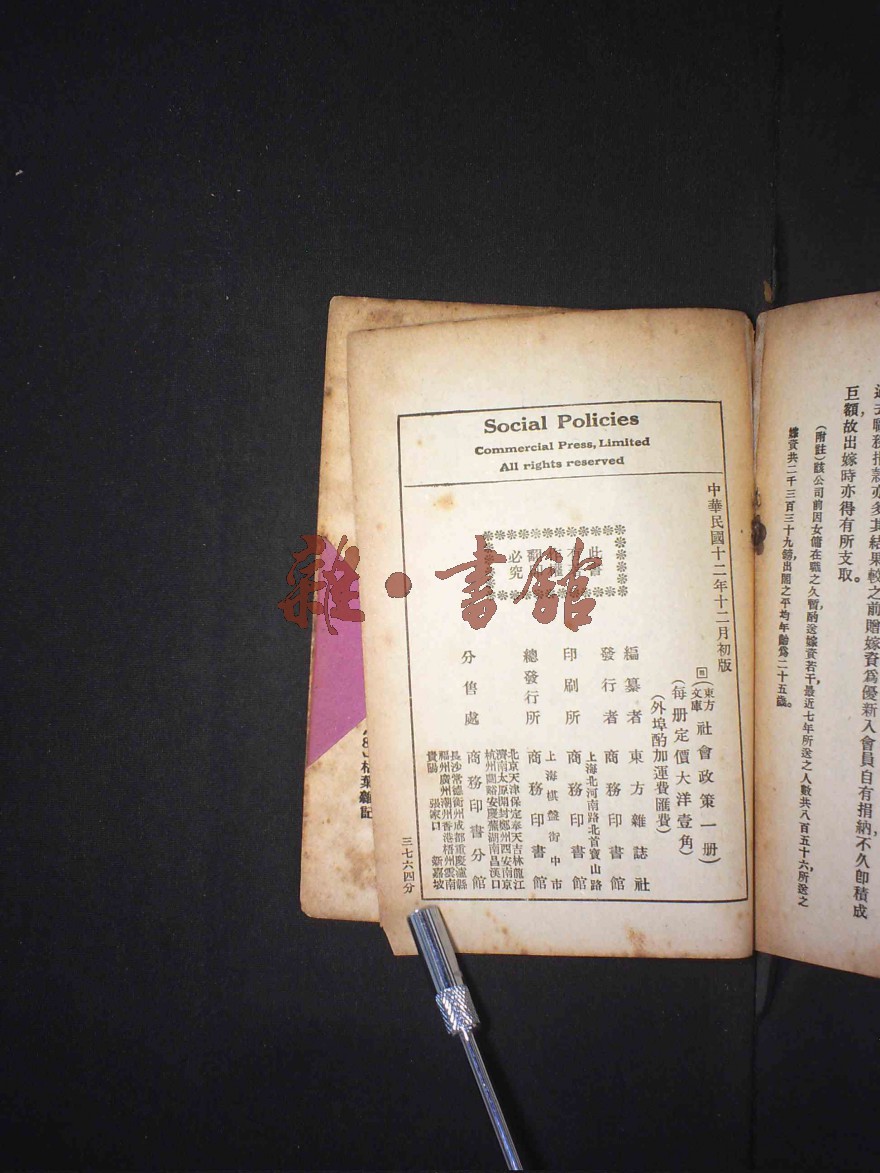 過去職務捐款亦多其結果較之前贈嫁資爲優新入會員自有捐納,不久卽積成
巨額故出嫁時亦得有所支取。
(附註)該公司前因女傭在職之久暫,酌送嫁資若干,最近七年所送之人數共八百五十六,所送之
嫁資共二千三百三十九鎊,出閣之平均年齡爲二十五歲。
Social Policies
Commercial Press, Limited
All rights reserved
中華民國十二年十二月初版
(東方文庫)社會政策一册)
(每册定價大洋壹角)
(外埠酌加運費匯費)
編纂者 東方雜誌社
發行者 商務印書館
上海北河南路北首寶山路
印刷所 商務印書館
上海棋盤街中市
總發行所 商務印書館
分售處 商務印書分館
北京天津保定奉天吉林龍江
濟南太原開封鄭州西安南京
杭州蘭谿安慶蕪湖南昌漢口
長沙常德衡州成都重慶瀘縣
福州廣州潮州香港梧州雲南
貴陽 張家口 新嘉坡
此書
必究
三七六四分
雜·書館